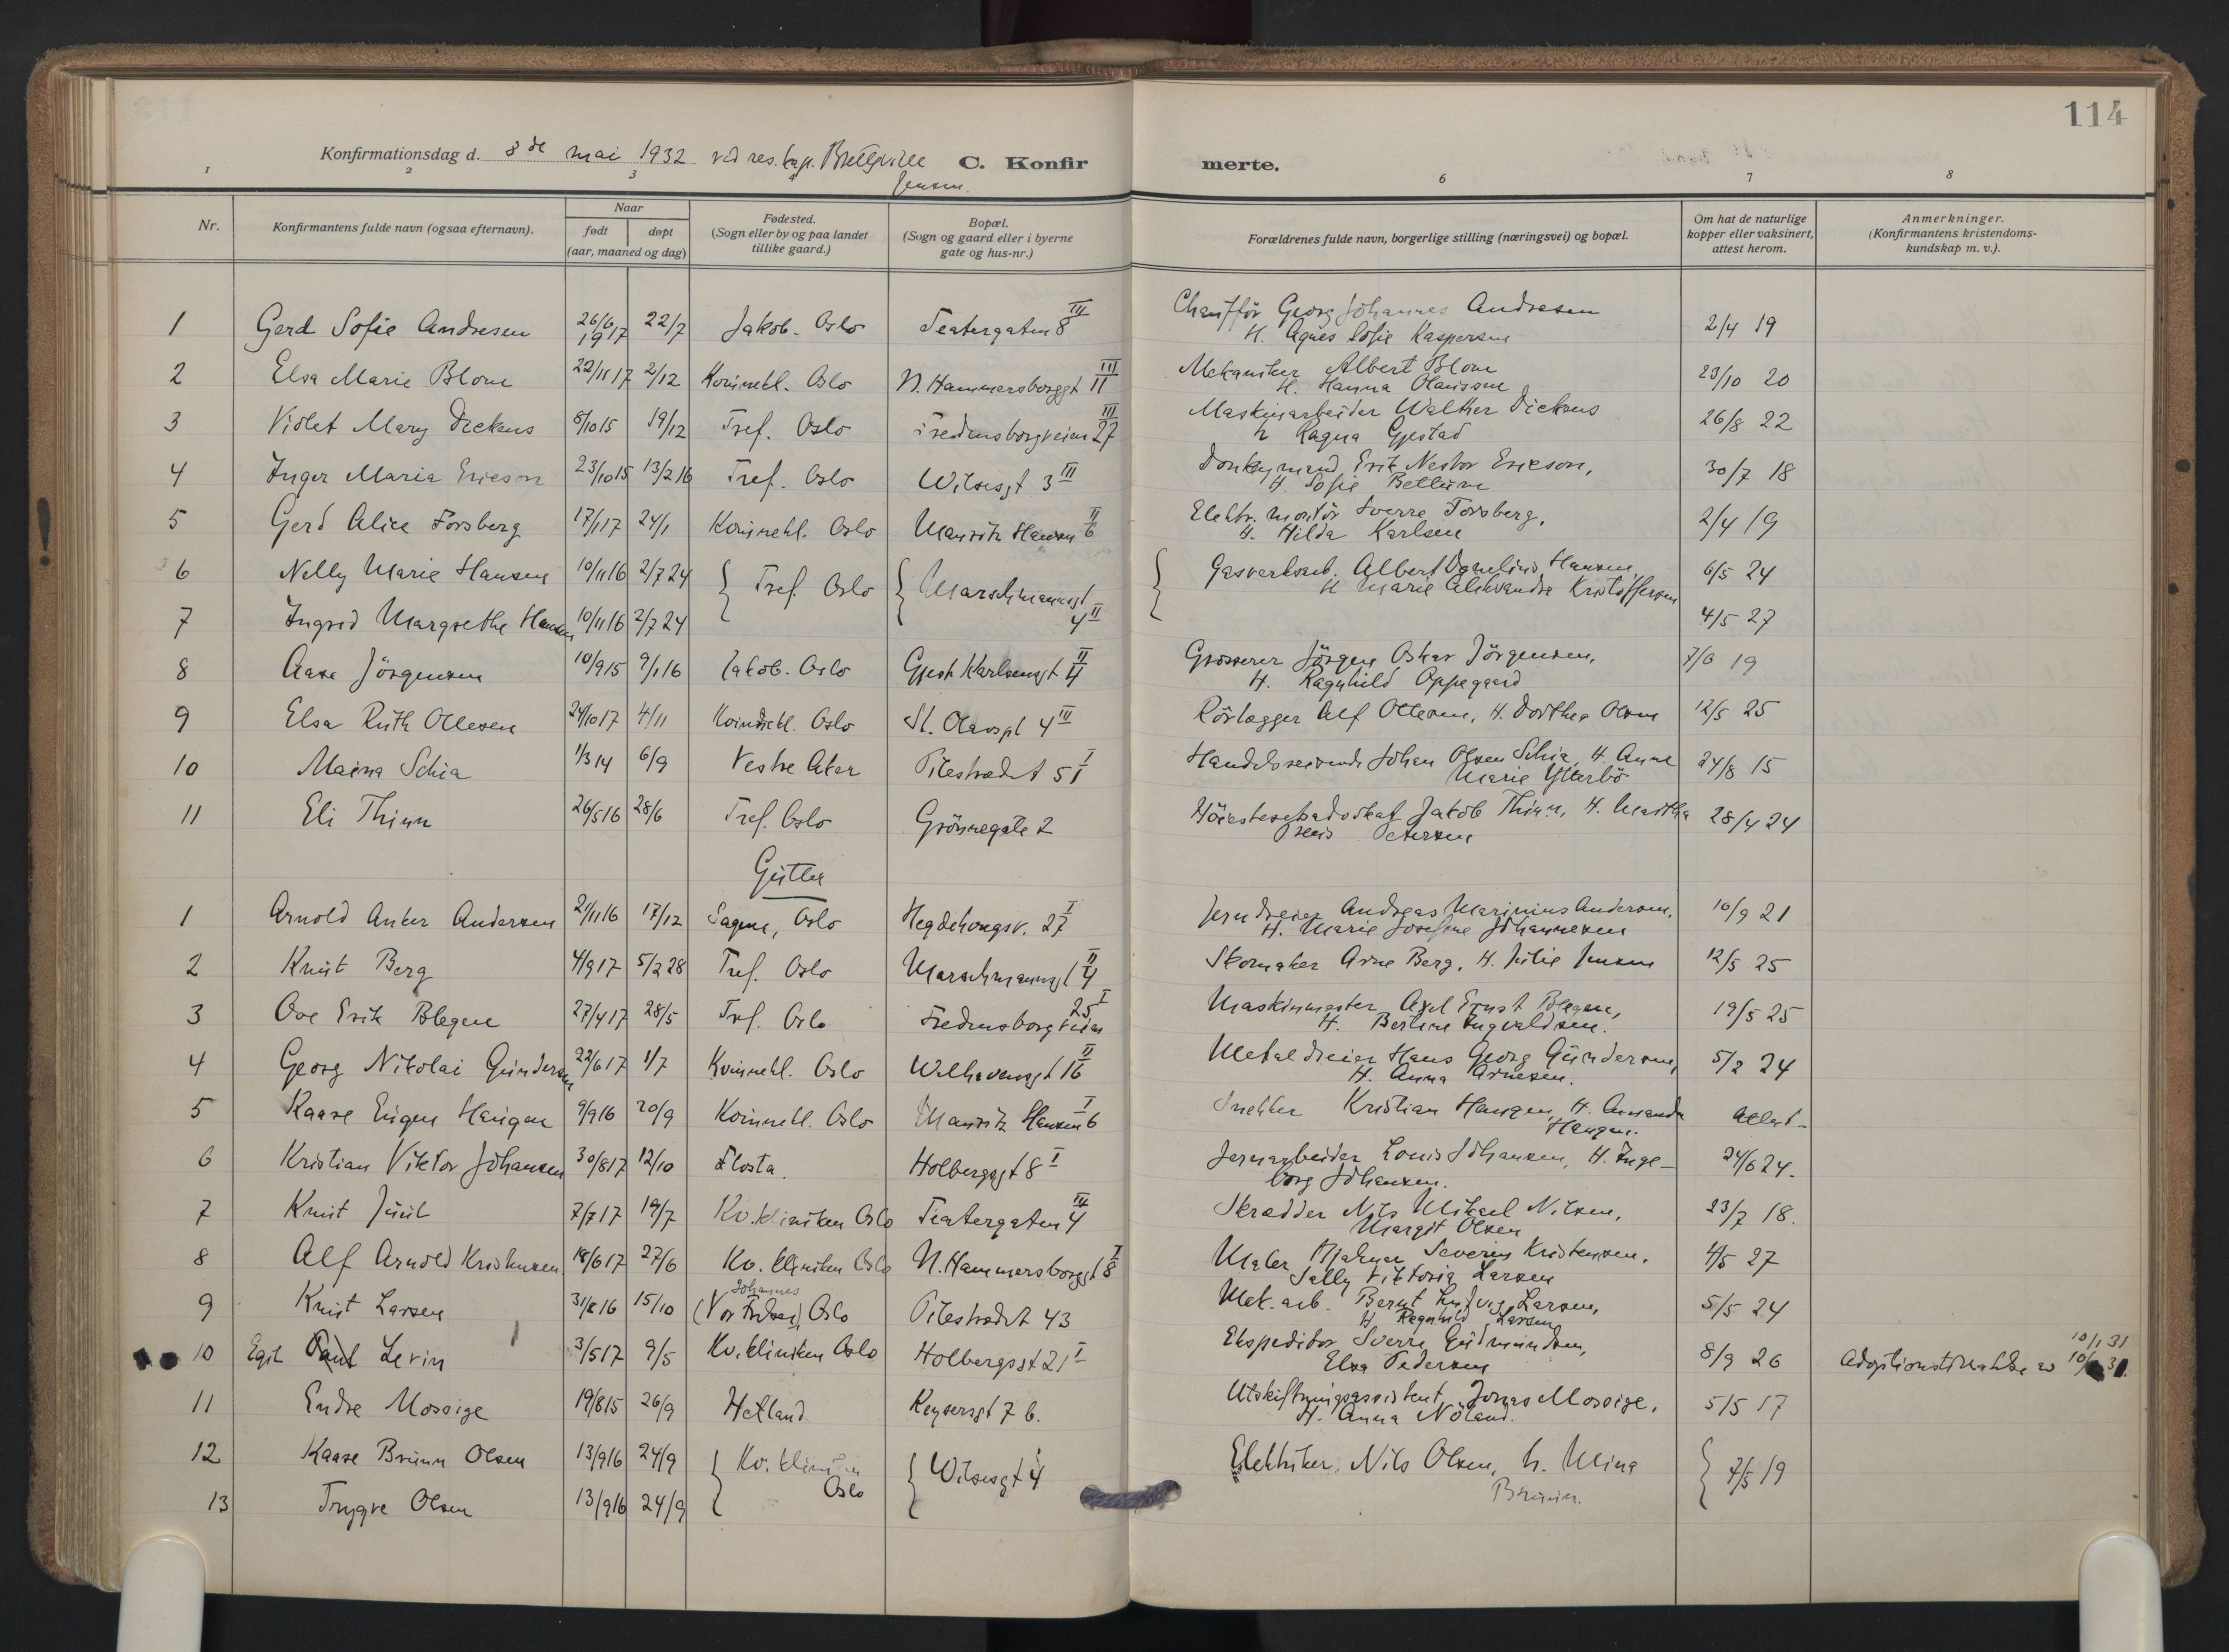 114
Konfirmationsdag d. 8de mai 1932 ved res. kap. Brettgville Jensen. C. Konfirmerte.
1 2 3 4 6 7 8
Nr. Konfirmantens fulde navn (ogsaa efternavn). Naar født døpt (aar, maaned og dag) Fødested. (Sogn eller by og paa landet tillike gaard.) Bopæl. (Sogn og gaard eller i byerne gate og hus-nr.) Forældrenes fulde navn, borgerlige stilling (næringsvei) og bopæl. Om hat de naturlige kopper eller vaksinert, attest herom. Anmerkninger. (Konfirmantens kristendoms-kundskap m. v.).
1 Gerd Sofie Andresen 26/6 1917 22/7 Jakob. Oslo Teatergaten 8 III Chaufför Georg Johannes Andresen H. Agnes Sofie Kaspersen 2/4 19
2 Elsa Marie Blom 22/11 17 2/12 Kvinnekl. Oslo N. Hammersborggt 11 III Mekaniker Albert Blom H. Hanna Olaussen 23/10 20
3 Violet Mary Dickens 8/10 15 19/12 Tref. Oslo Fredensborgveien 27 III Maskinarbeider Walther Dickens h Ragna Gjestad 26/8 22
4 Inger Maria Ericson 23/10 15 13/2 16 Tref. Oslo Wilsesgt 3 III Donkeymand Erik Nestor Ericson, H. Sofie 30/7 18
5 Gerd Alice Forsberg 17/1 17 24/1 Kvinnekl. Oslo Mauritz Hansen 6 II Elektr. montör Sverre Forsberg, H. Hilda Karlsen 2/4 19
6 Nelly Marie Hansen 10/11 16 2/7 24 Tref. Oslo Marschmannsgt 4 II Gasverksarb. Albert Kornelius Hansen, H Marie Aleksandra Kristoffersen 6/5 24
7 Ingrid Margrethe Hansen 10/11 16 2/7 24 4/5 27
8 Aase Jörgensen 10/9 15 9/1 16 Jakob. Oslo Gjest Karlsensgt 4 II Grosserer Jörgen Oskar Jörgensen, H. Ragnhild Oppegaard 7/6 19
9 Elsa Ruth Ottesen 24/10 17 4/11 Kvindekl. Oslo St. Olavspl 4 III Rörlægger Alf Ottesen, H. Dorthea Olsen 12/5 25
10 Maina Schia 1/3 14 6/9 Vestre Aker Pilestrædet 51 I Handelsreisende Johan Olsen Schia, H. Anne Marie Ytterbö 24/8 15
11 Eli Thinn 26/5 16 28/6 Tref. Oslo Grönnegate 2 Höiesteretsadvokat Jakob Thinn, H. Martha Petersen 28/4 24
Gutter
1 Arnold Anker Andersen 21/11 16 17/12 Sagene, Oslo Hegdehaugsv. 27 I Jerndreier Andreas Marinius Andersen, H. Marie Josefine Johannesen 10/9 21
2 Knut Berg 4/9 17 5/2 28 Tref. Oslo Marschmannsgt 4 II Skomaker Arne Berg, H. Julie Jensen 12/5 25
3 Ove Erik Blegen 27/4 17 28/5 Tref. Oslo Fredensborgveien 25 I Maskinmester Axel Ernst Blegen, H. Bertine Ingvaldsen. 19/5 25
4 Georg Nikolai Gundersen 22/6 17 1/7 Kvinnekl. Oslo Welhavensgt 16 II Metaldreier Hans Georg Gundersen, H. Anna Arnesen. 5/2 24
5 Kaare Eugen Haugen 9/9 16 20/9 Kvinnekl. Oslo Mauritz Hansen 6 I Snekker Kristian Haugen, H. Amanda Haugen. attest
6 Kristian Viktor Johansen 30/8 17 12/10 Flosta. Holbergsgt 8 I Jernarbeider Louis Johansen, H. Ingeborg Johansen. 24/6 24.
7 Knut Juul 7/7 17 19/7 Kv.kliniken Oslo Teatergaten 4 III Skrædder Nils Mikael Nilsen, Margit Olsen 23/7 18.
8 Alf Arnold Kristensen 18/6 17 27/6 Kv. kliniken Oslo N. Hammersborggt 8 I Maler Hjalmar Severin Kristensen, Sally Viktoria Larsen 4/5 27
9 Knut Larsen 31/8 16 15/10 (Vor Frelser) Johannes Oslo Pilestrædet 43 Mek. arb. Bernt Ludvig Larsen, H Ragnhild Larsen 5/5 24
10 Egil Levin 3/5 17 9/5 Kv. kliniken Oslo Holbergsgt 21 I Ekspeditör Sverre Gudmundsen, Elsa Pedersen 8/9 26 Adoptionstilladelse av 10/1 31
11 Endre Mossige 19/8 15 26/9 Hetland Keysersgt 7 b. Utskiftningsassistent Jonas Mossige, H. Anna Nöland. 5/5 17
12 Kaare Bruun Olsen 13/9 16 24/9 Kv. kliniken Oslo Wilsesgt 4 Elektriker Nils Olsen, h. Mina Bruun. 7/5 19
13 Trygve Olsen 13/9 16 24/9